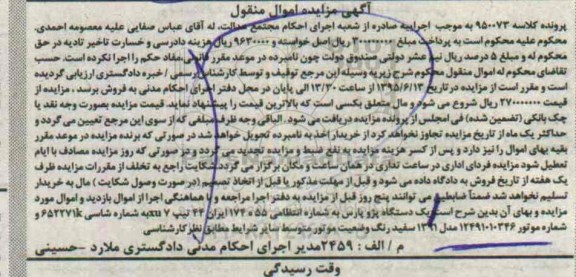 آگهی مزایده اموال منقول
پرونده کلاسه 950073 به موجب اجراییه صادره از شعبه اجرای احکام مجتمع عدالت، له آقای عباس صفایی علیه معصومه احمدی.
محکوم علیه محکوم است به پرداخت مبلغ ریال اصل خواسته و 9630000 ریال هزینه دادرسی و خسارت تاخیر تادیه در حق
محکوم له و مبلغ 5 درصد ریال نیم عشر دولتی صندوق دولت چون نامبرده در موعد مقرر قانونی مفاد حکم را اجرا نکرده است. حسب
تقاضای محکوم له اموال منقول محکوم شرح زیر به وسیله این مرجع توقیف و توسط کارشناس رسمی / خبره دادگستری ارزیابی گردیده
است و مقرر است از مزایده در تاریخ 1395/6/13 از ساعت الی 13/30 پایان در محل دفتر اجرای احکام مدنی به فروش برسد، مزایده از
مبلغ 37000000 ریال شروع می شود و مال متعلق بکسی است که بالاترین قیمت را پیشنهاد نماید. قیمت مزایده بصورت وجه نقد یا
چک بانکی (تضمین شده) فی المجلس از برنده مزایده دریافت می شود. الباقی وجه ظرف مبلغی که از سوی این مرجع تعیین می گردد و
حداکثر یک ماه از تاریخ مزایده تجاوز نخواهد کرد از خریدار اخذ به نامبرده تحویل خواهد شد در صورتی که برنده مزایده در موعد مقرر
بقیه بهای اموال را نیز دارد و پس از کسر هزینه مزایده به نفع ضبط و مزایده تجدید می گردد و در صورتی که روز مزایده مصادف با ایام
تعطیل شود مزایده فردای اداری در ساعت تعدادی در همان ساعت و مکان برگزار می گردد شکایت راجع به تخلف از مقررات مزایده ظرف
یک هفته از تاریخ فروش به دادگاه داده می شود و قبل از مهلت مذکور یا قبل از اتخاذ تصمیم (در صورت وصول شکایت) مال به خریدار
تسلیم نخواهد شد ضمناً می توانند پنج روز قبل از مزایده به دفتر اجرا مراجعه و با هماهنگی اجرا از اموال بازدید و اموال مورد
مزایده و بهای آن بدین شرح است یک دستگاه پژو پارس به شماره انتظامی 55 ه 174 ایران 44 تیپ xu7 به شماره شاسی و
شماره موتور 12491010346 مدل 1391 سفید رنگ وضعیت موتور متوسط سایر شرایط مطابق نظر کارشناسی
م / الف : 2459 مدیر اجرای احکام مدنی دادگستری ملارد -حسینی
وقت رسیدگی